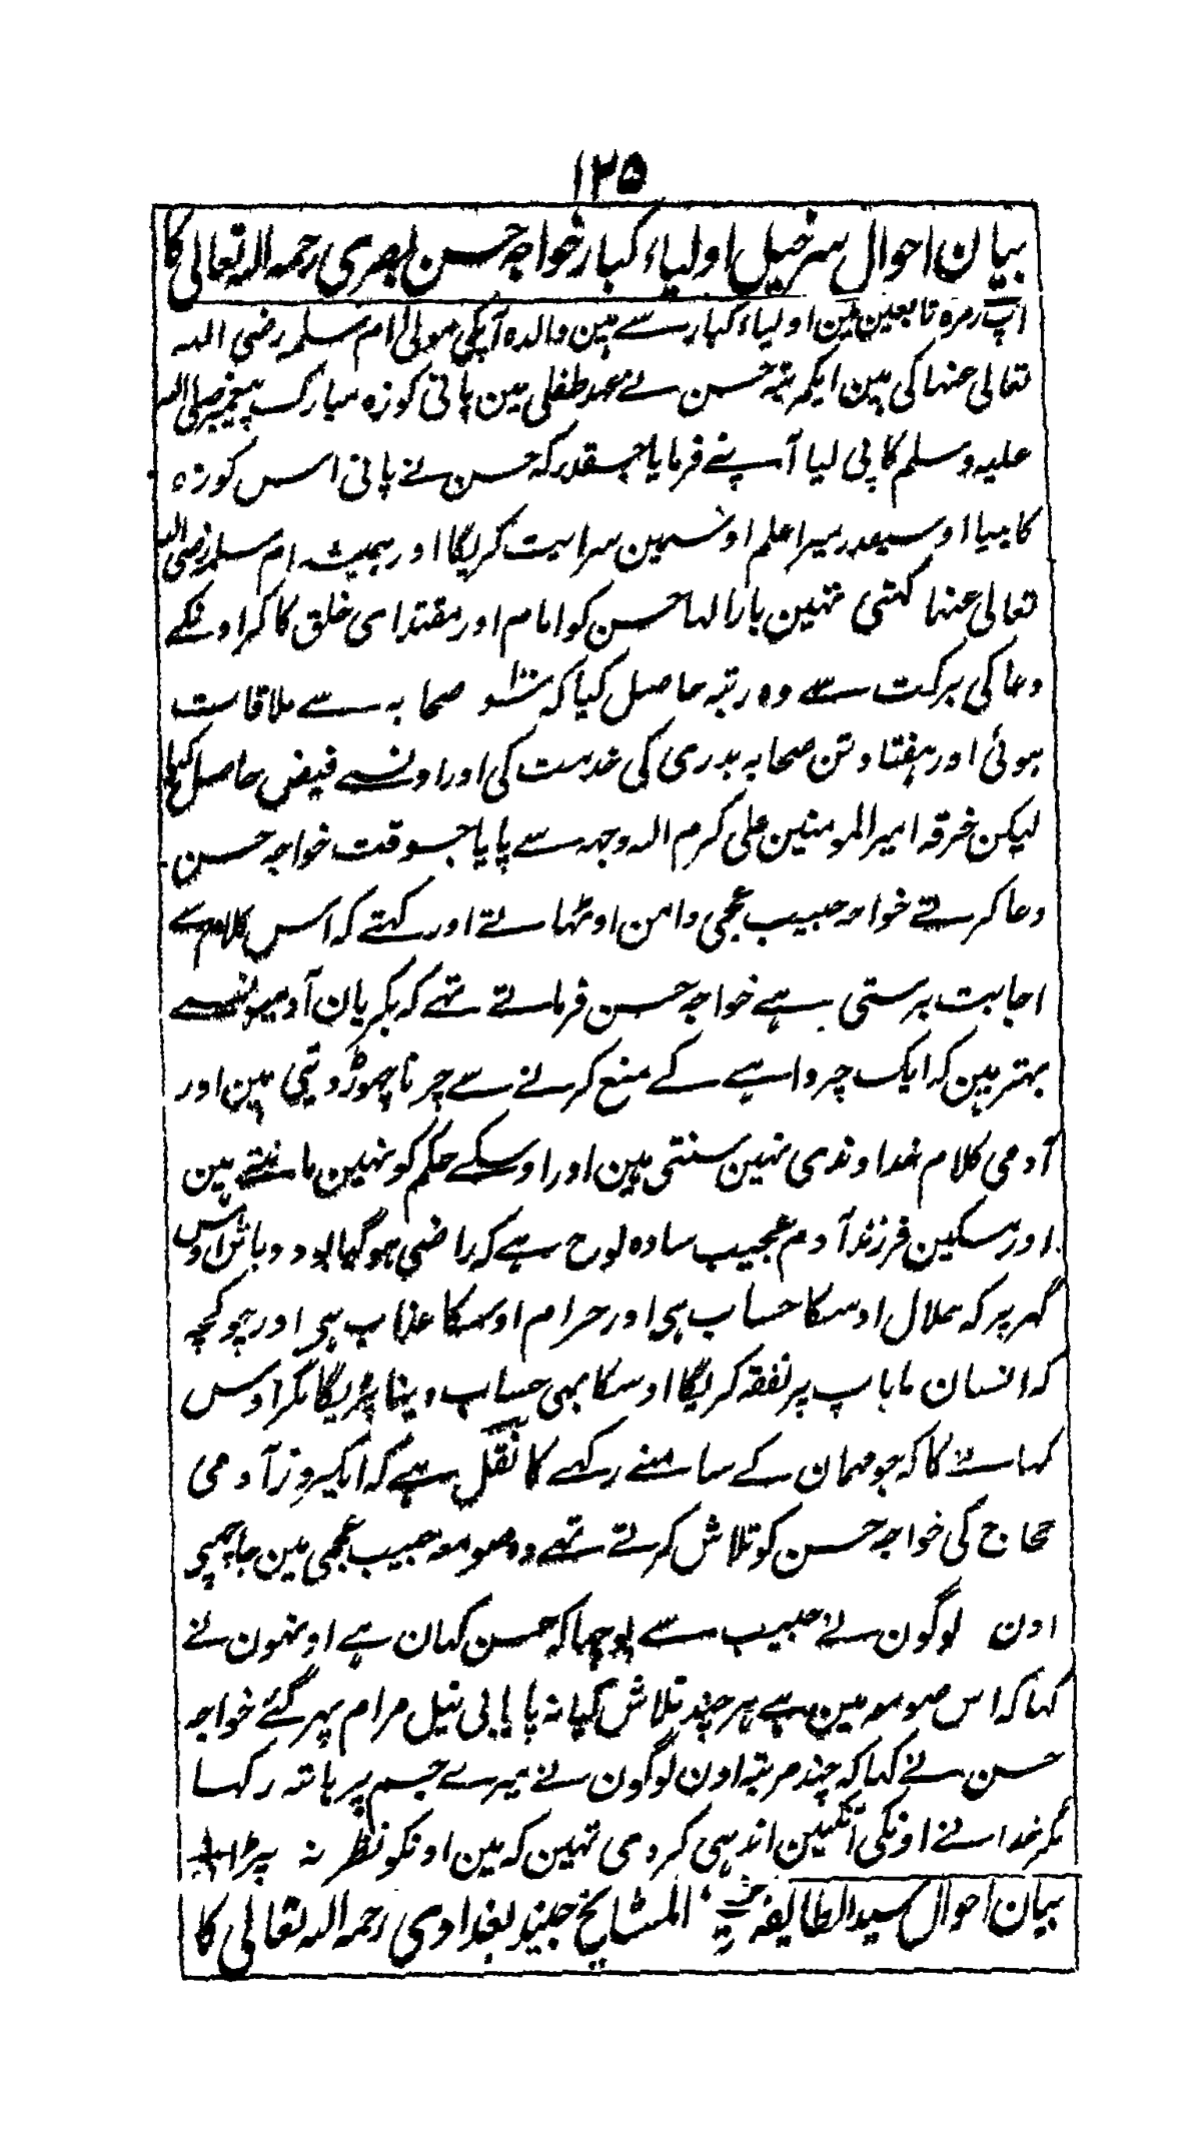 ۱۲۵
بیان احوال سرخیل اولیاء کبار خواجہ حسن بصری رحمہ اللہ تعالی کا
آپ زمرہ تابعین مین اولیاء کبار سے ہین والدہ آپکی مولیٰ ام سلمہ رضی اللہ
تعالی عنہا کی ہین ایکمرتبہ حسن نے عہد طفلی مین پانی کوزہ مبارک پیغمبر صلی اللہ
علیہ وسلم کا پی لیا آپنے فرمایا جسقدر کہ حسن نے پانی اس کوزہ
کا پیا اوسیقدر میرا علم اوسمین سرایت کریگا اور ہمیشہ ام سلمہ رضی اللہ
تعالی عنہا کہتی تہین بار الہا حسن کو امام اور مقتدای خلق کا کر اونکے
دعا کی برکت سے وہ رتبہ حاصل کیا کہ سو صحابہ سے ملاقات
ہوئی اور ہفتاد تن صحابہ بدری کی خدمت کی اور اونسے فیض حاصل کیا
لیکن خرقہ امیر المومنین علی کرم اللہ وجہہ سے پایا جسوقت خواجہ حسن
دعا کرتے خواجہ حبیب عجمی دامن اوٹھاتے اور کہتے کہ اس کلام سے
اجابت برستی ہے خواجہ حسن فرماتے تہے کہ بکریان آدمیونسے
بہتر ہین کہ ایک چرواہے کے منع کرنے سے چرنا چھوڑ دیتی ہین اور
آدمی کلام خداوندی نہین سنتی ہین اور اوسکے حکم کو نہین مانتے ہین
اور مسکین فرزند آدم عجیب سادہ لوح ہے کہ راضی ہو گیا بود و باش اوس
گہر پر کہ حلال اوسکا حساب ہی اور حرام اوسکا عذاب ہی اور جو کچہہ
کہ انسان ماباپ پر نفقہ کریگا اوسکا بہی حساب دینا پڑیگا مگر اوس
کہانے کا کہ جو مہمان کے سامنے رکہے کا نقل ہے کہ ایکروز آدمی
حجاج کی خواجہ حسن کو تلاش کرتے تہے وہ صومعہ حبیب عجمی مین جا چھپی
اون لوگون نے حبیب سے پوچہا کہ حسن کہان ہے اونہون نے
کہا کہ اس صومعہ مین ہے ہر چند تلاش کیا نہ پایا بی نیل مرام پہر گئے خواجہ
حسن نے کہا کہ چند مرتبہ اون لوگون نے میرے جسم پر ہاتہ رکہا
مگر خدا نے اونکی آنکہین اندہی کر دی تہین کہ مین اونکو نظر نہ پڑا
بیان احوال سید الطایفہ شیخ المشایخ جنید بغدادی رحمہ اللہ تعالی کا